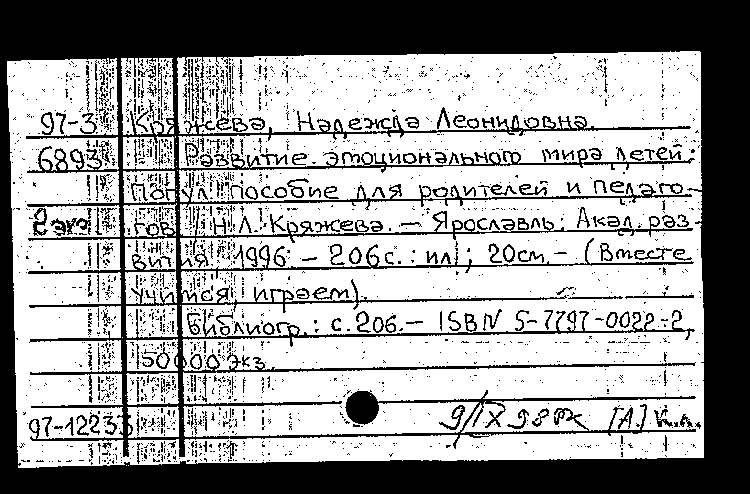 97-3 Кряжева, Надежда Леонидовна.
6893 Развитие эмоционального мира детей:
Попул. пособие для родителей и педаго-
2 экз гов / Н.Л. Кряжева. — Ярославль: Акад. раз-
вития, 1996. - 206с.: ил.; 20см. - (Вместе
учимся, играем).
Библиогр.: с. 206. — ISBN 5-7797-0022-2,
50000 экз.
97-12233 9/IX 98 [А]